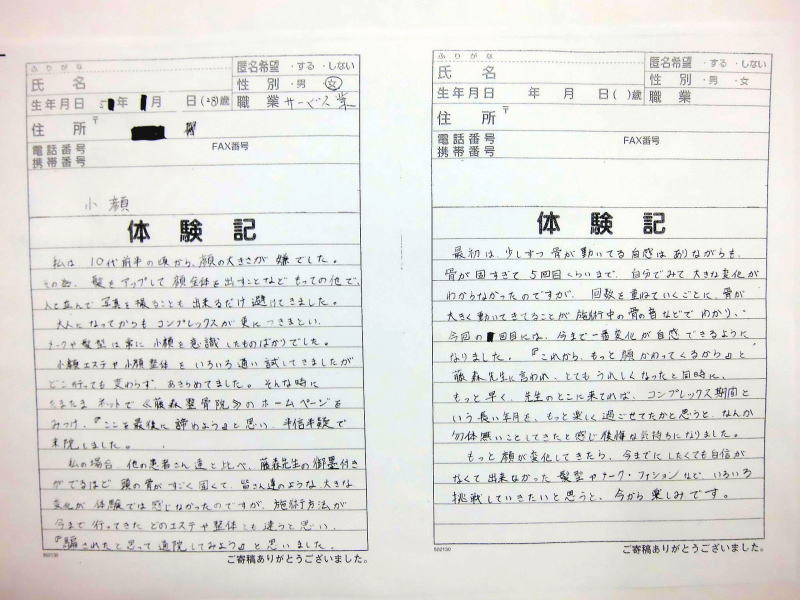 ふりがな
氏名
匿名希望 ・する ・しない
性別 ・男 ・女
生年月日 5 年 月 日(28)歳
職業 サービス業
住所 〒
電話番号 FAX番号
携帯番号
小顔
体験記
私は 10代前半の頃から、顔の大きさが 嫌でした。
その為、髪をアップして 顔全体を出すことなど もっての他で、
人と並んで 写真を撮ることも 出来るだけ 避けてきました。
大人になってからも コンプレックスが 更につきまとい、
メークや髪型は常に 小顔を意識したものばかりでした。
小顔エステや小顔整体を いろいろ通い試してきましたが
どこ行っても 変わらず、あきらめてました。そんな時に
たまたま ネットで《藤森整骨院》のホームページを
みつけ、『ここを最後に 諦めよう』と思い、半信半疑で
来院しました。
私の場合、他の患者さん達と比べ、藤森先生の御墨付き
がでるほど 頭の骨がすごく固くて、皆さん達のような大きな
変化が 体験では感じなかったのですが、施術方法が
今まで 行ってきた どのエステや整体とも違うと思い、
『騙されたと思って 通院してみよう』と思いました。
502130
ご寄稿ありがとうございました。
ふりがな
氏名
匿名希望 ・する ・しない
性別 ・男 ・女
生年月日 年 月 日( )歳
職業
住所 〒
電話番号 FAX番号
携帯番号
体験記
最初は、少しずつ骨が動いてる自感はありながらも、
骨が固すぎて 5回目くらいまで、自分でみて 大きな変化が
わからなかったのですが、 回数を重ねていくごとに、骨が
大きく動いてきてることが 施術中の骨の音などで わかり、
今回の 回目には、今まで一番変化が自感できるように
なりました。『これから、もっと顔かわってくるから』と
藤森先生に言われ、とてもうれしくなったと同時に、
もっと早く、先生のとこに来てれば、コンプレックス期間と
いう長い年月を、もっと楽しく過ごせてたかと思うと、なんか
勿体無いことしてきたと感じ後悔な気持ちになりました。
もっと顔が変化してきたら、今までにしたくても自信が
なくて出来なかった 髪型やメーク・ファションなど、いろいろ
挑戦していきたいと思うと、今から楽しみです。
502130
ご寄稿ありがとうございました。